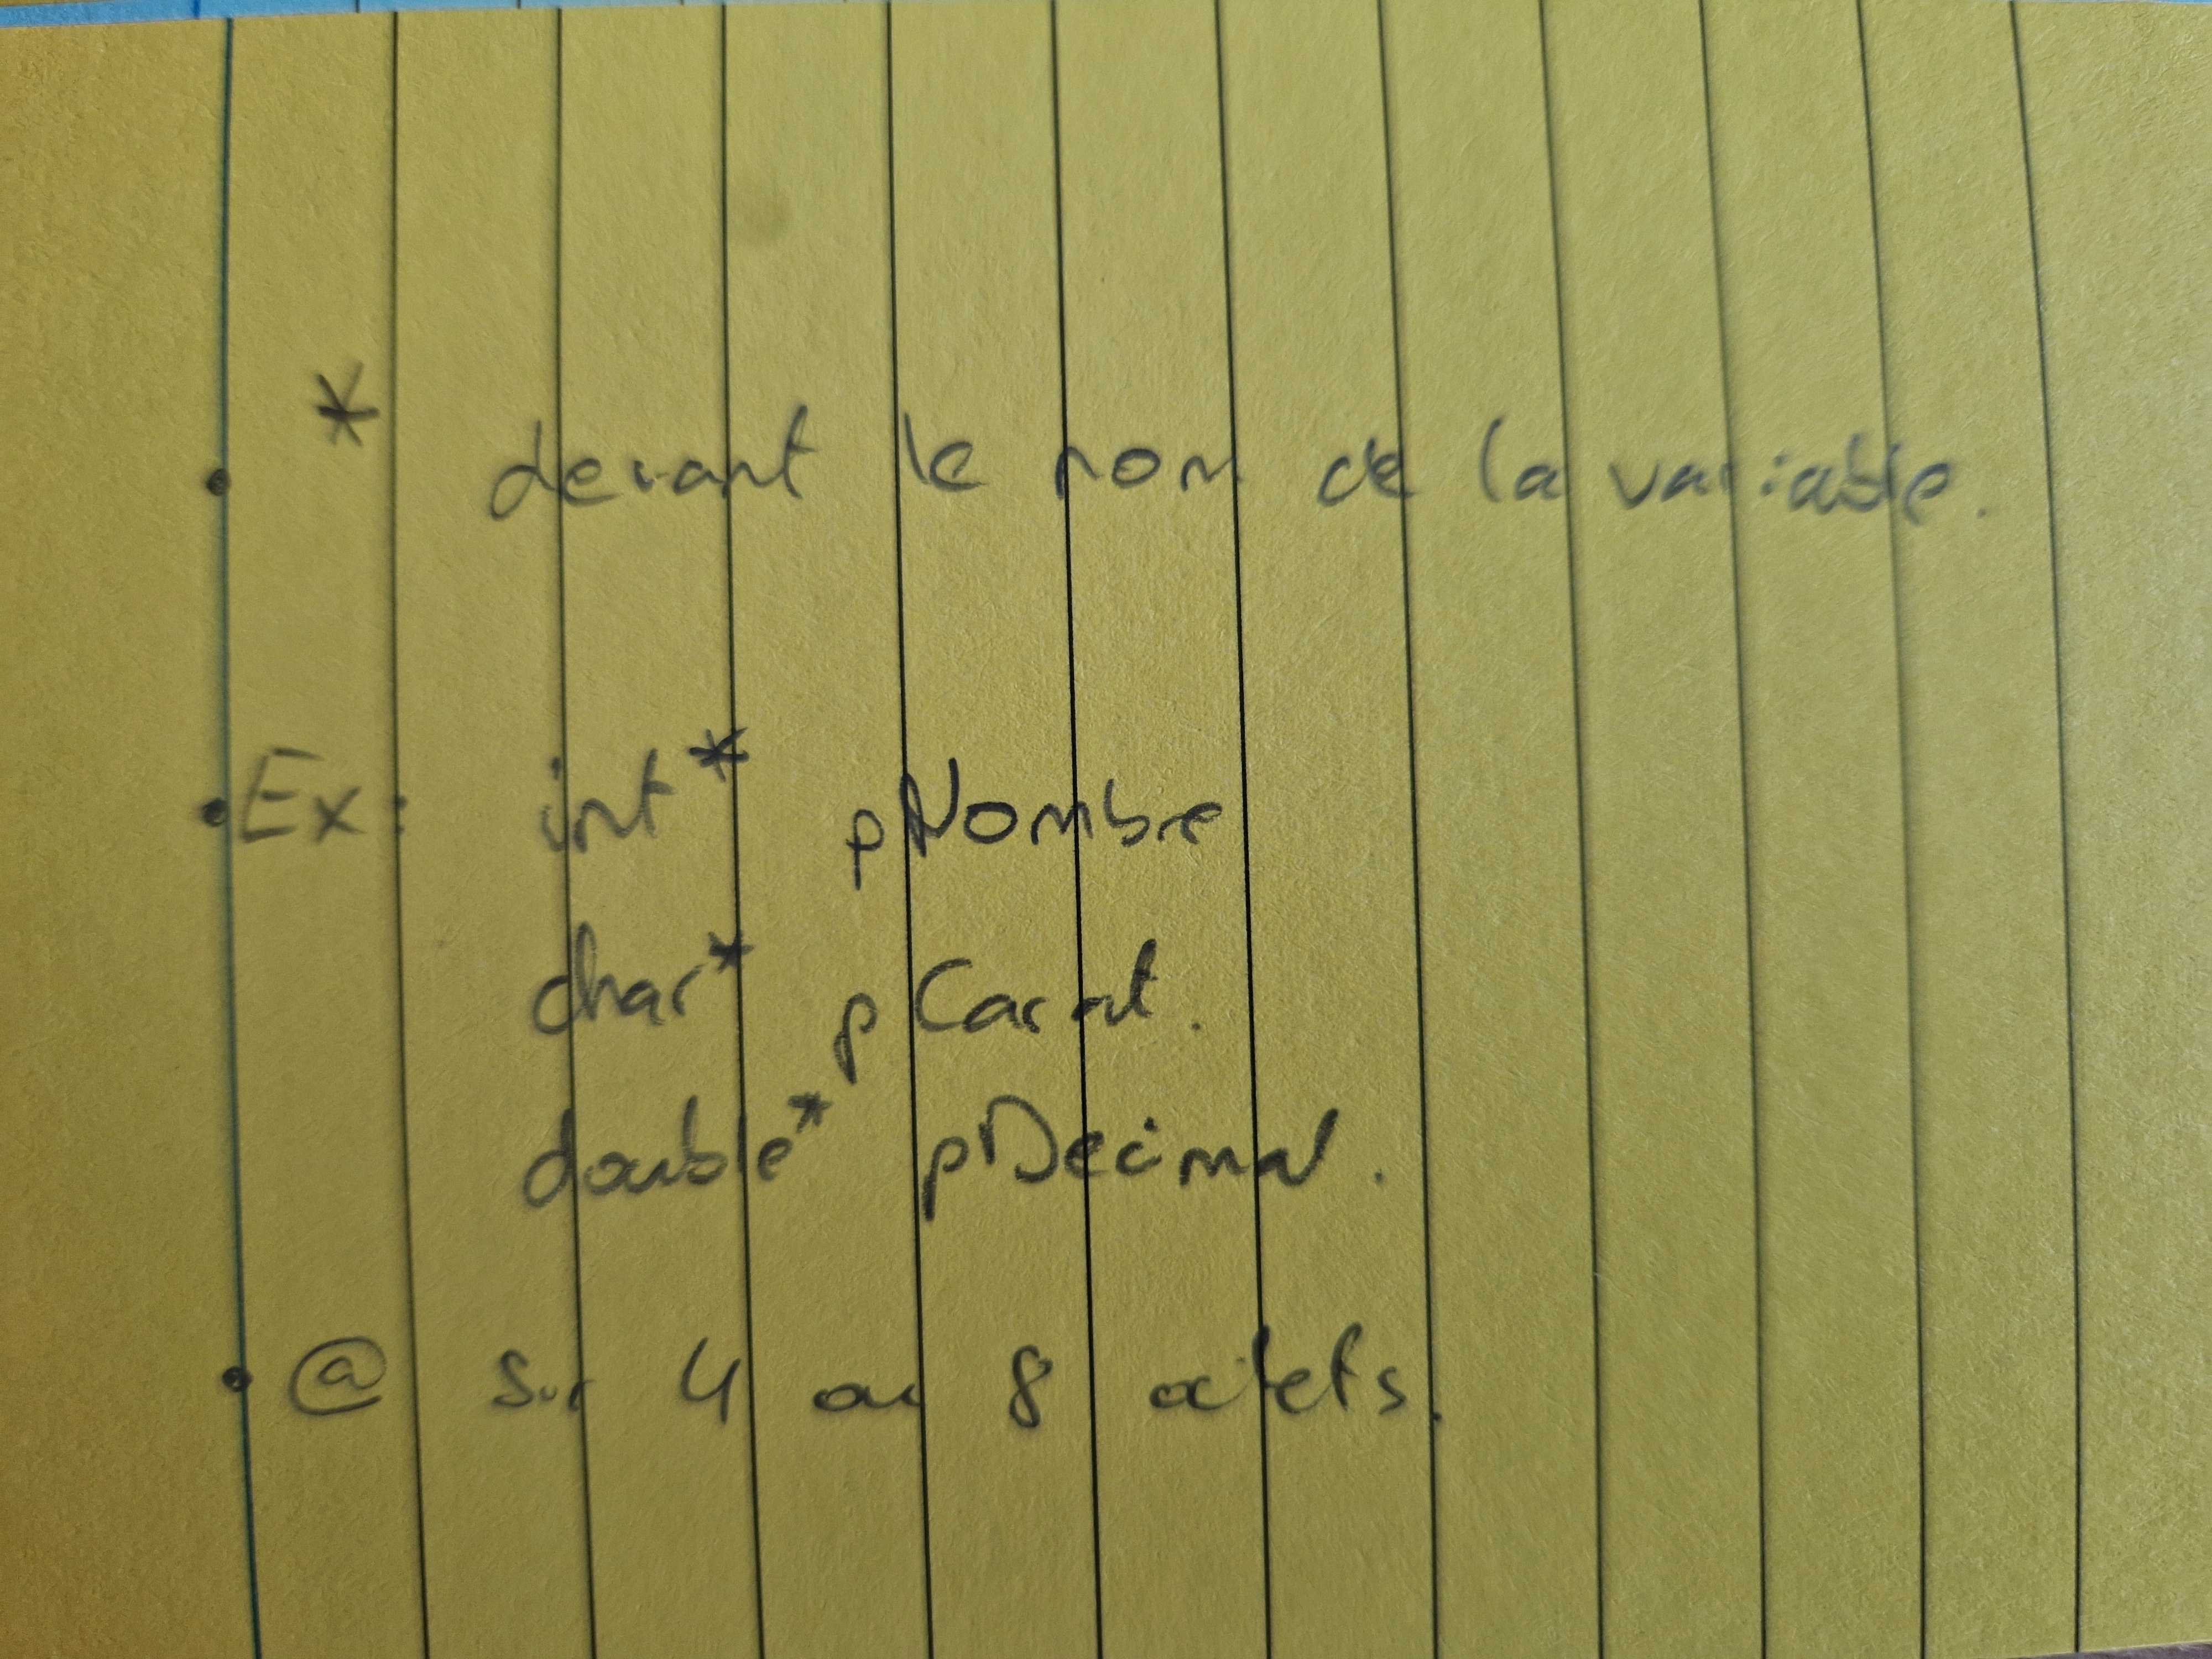 • * devant le nom de la variable.
• Ex: int* pNombre
char* pCarat.
double* pDecimal.
• @ sur 4 ou 8 octets.